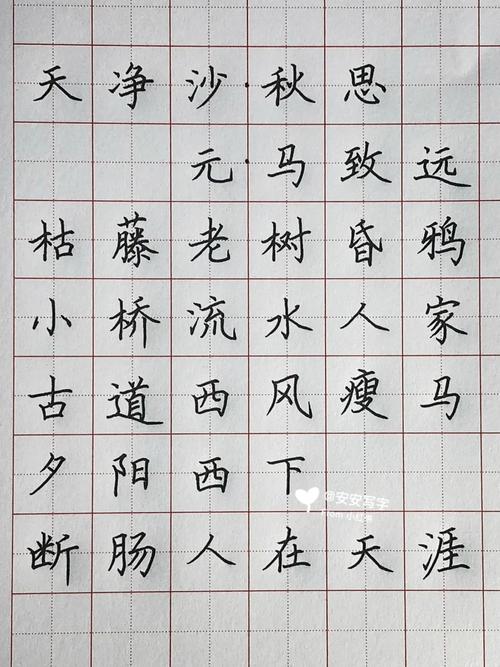 天净沙·秋思
元·马致远
枯藤老树昏鸦
小桥流水人家
古道西风瘦马
夕阳西下
@安安写字
From 小红书
断肠人在天涯